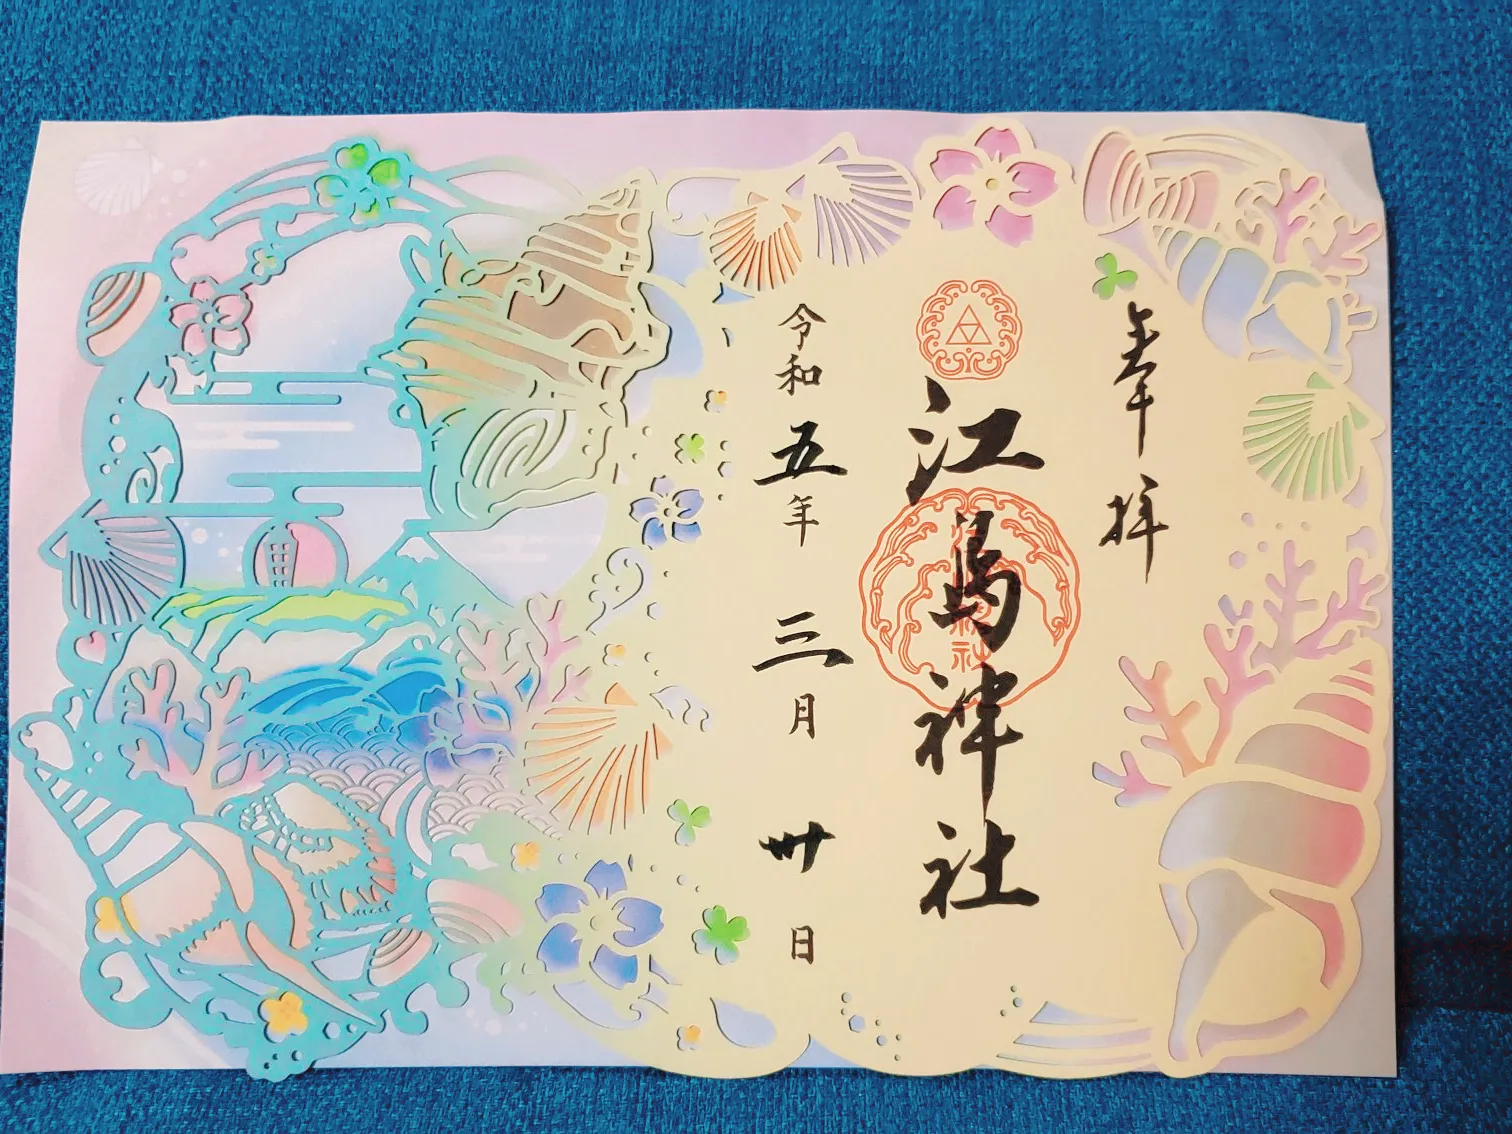 奉拝
江島神社
令和五年三月卅日